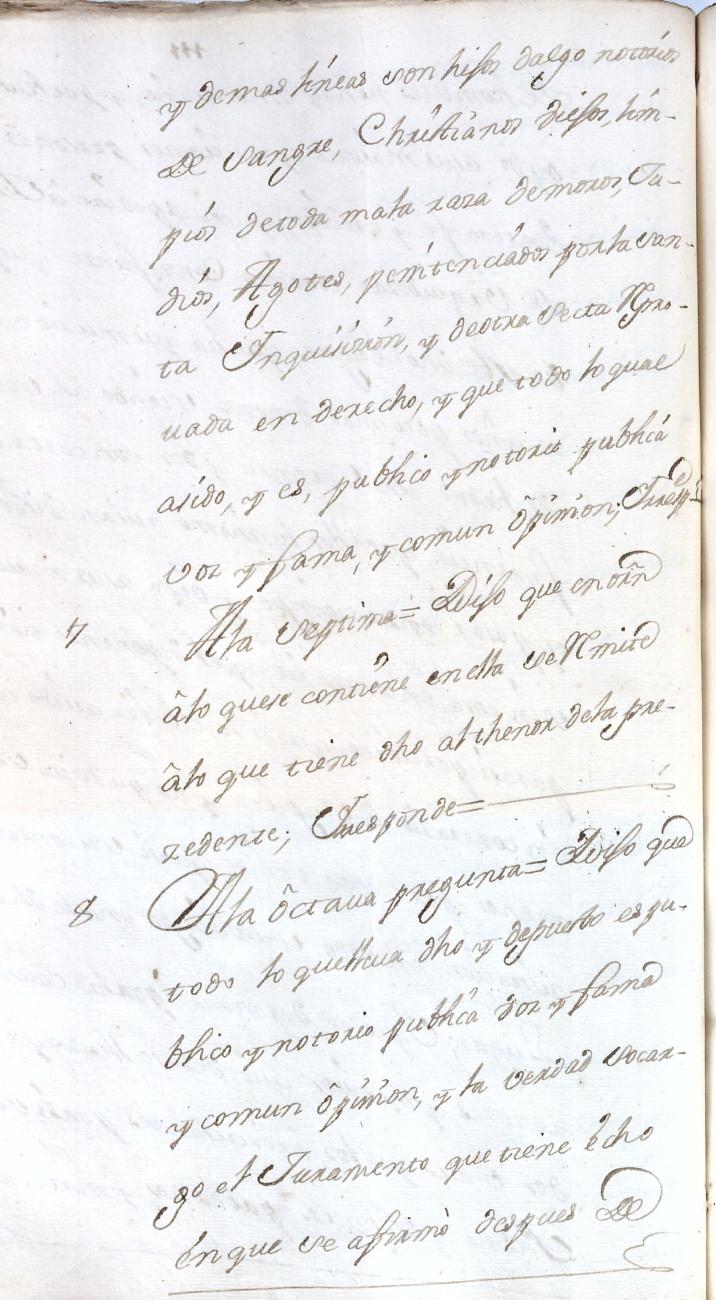 y demas lineas son hijos dalgo notorios
De sangre, Christianos viejos, lim-
pios de toda mala raza de moros, Ju-
dios, Agotes, penitenciados por la san-
ta Inquisizion, y de otra secta Rpro-
uada en derecho, y que todo lo qual
asido, y es, publico y notorio publica
voz y fama, y comun opinion; Yrresp.de
7 Ala septima= Dijo que en orñ
âlo quese contiene en ella se Rmite
âlo que tiene dho al thenor dela pre-
zedente; Yresponde=
8 Ala ôctaua pregunta= Dijo que
todo lo que lleua dho y depuesto es pu-
blico y notorio publica voz y fama
y comun ôpinion, y la verdad socar-
go el Juramento que tiene écho
én que se affirmò despues De